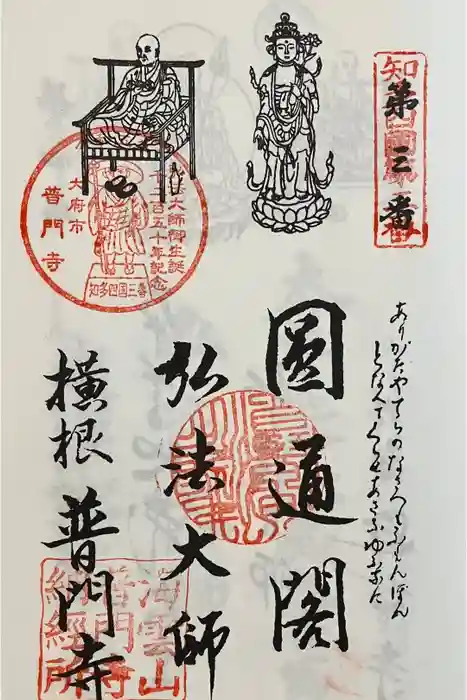 第三番
ありがたやてらのなさへもふもんぼん
となへてくらせあさなゆふなに
圓通閣
弘法大師
横根 普門寺
弘法大師御生誕
千二百五十年記念
大府市
普門寺
知多四国三番
海雲山
普門寺
納経所